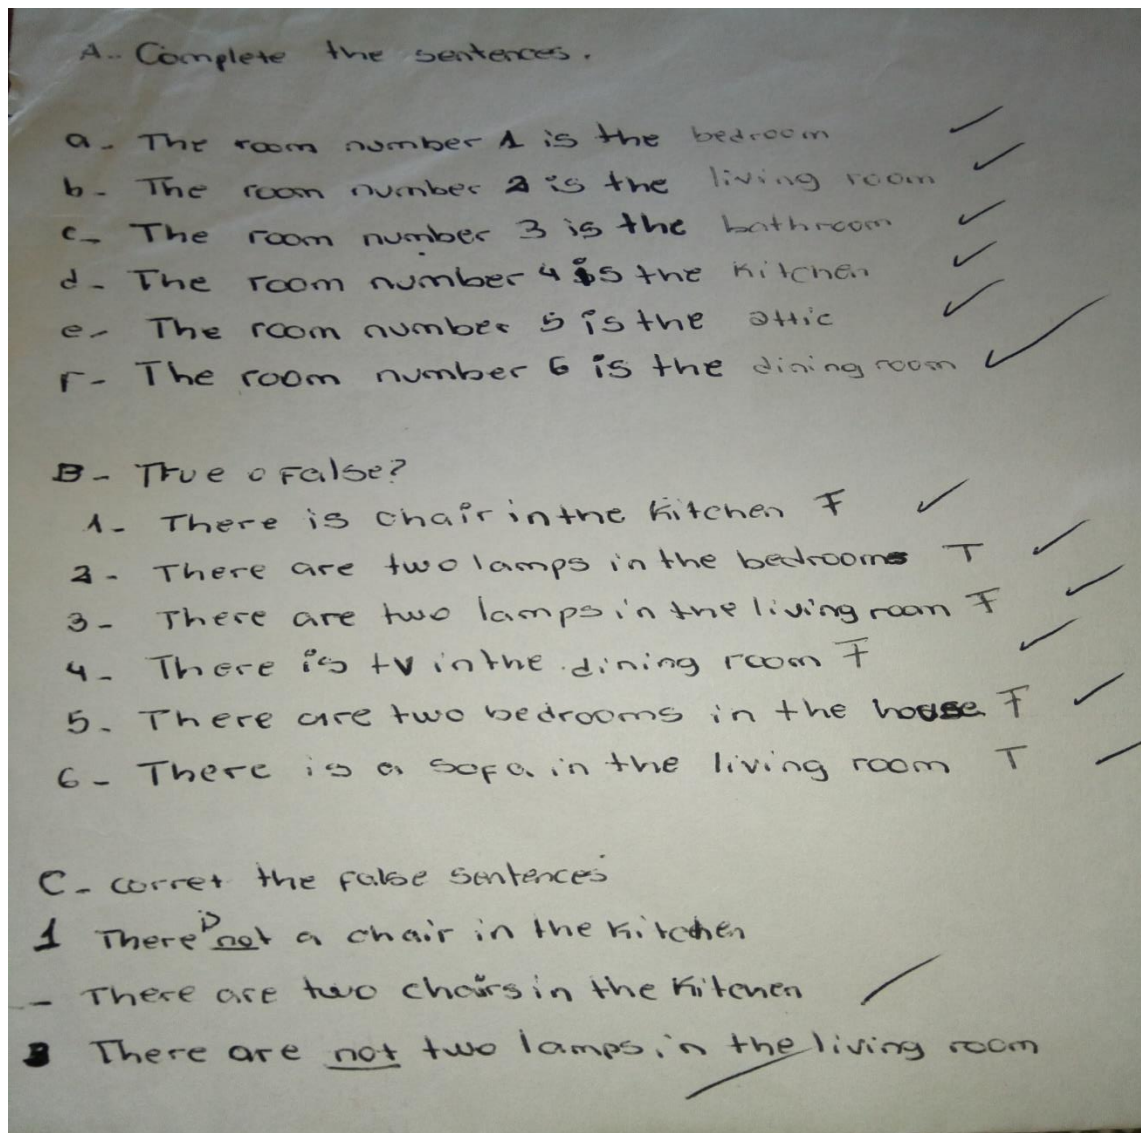 A-. Complete the sentences.
a- The room number 1 is the bedroom
b- The room number 2 is the living room
c- The room number 3 is the bathroom
d- The room number 4 is the kitchen
e- The room number 5 is the attic
F- The room number 6 is the dining room
B- True o False?
1- There is chair in the kitchen F
2- There are two lamps in the bedrooms T
3- There are two lamps in the living room F
4- There is tv in the dining room F
5- There are two bedrooms in the house F
6- There is a sofa in the living room T
C- corret the false sentences
1 There is not a chair in the kitchen
- There are two chairs in the kitchen
3 There are not two lamps in the living room